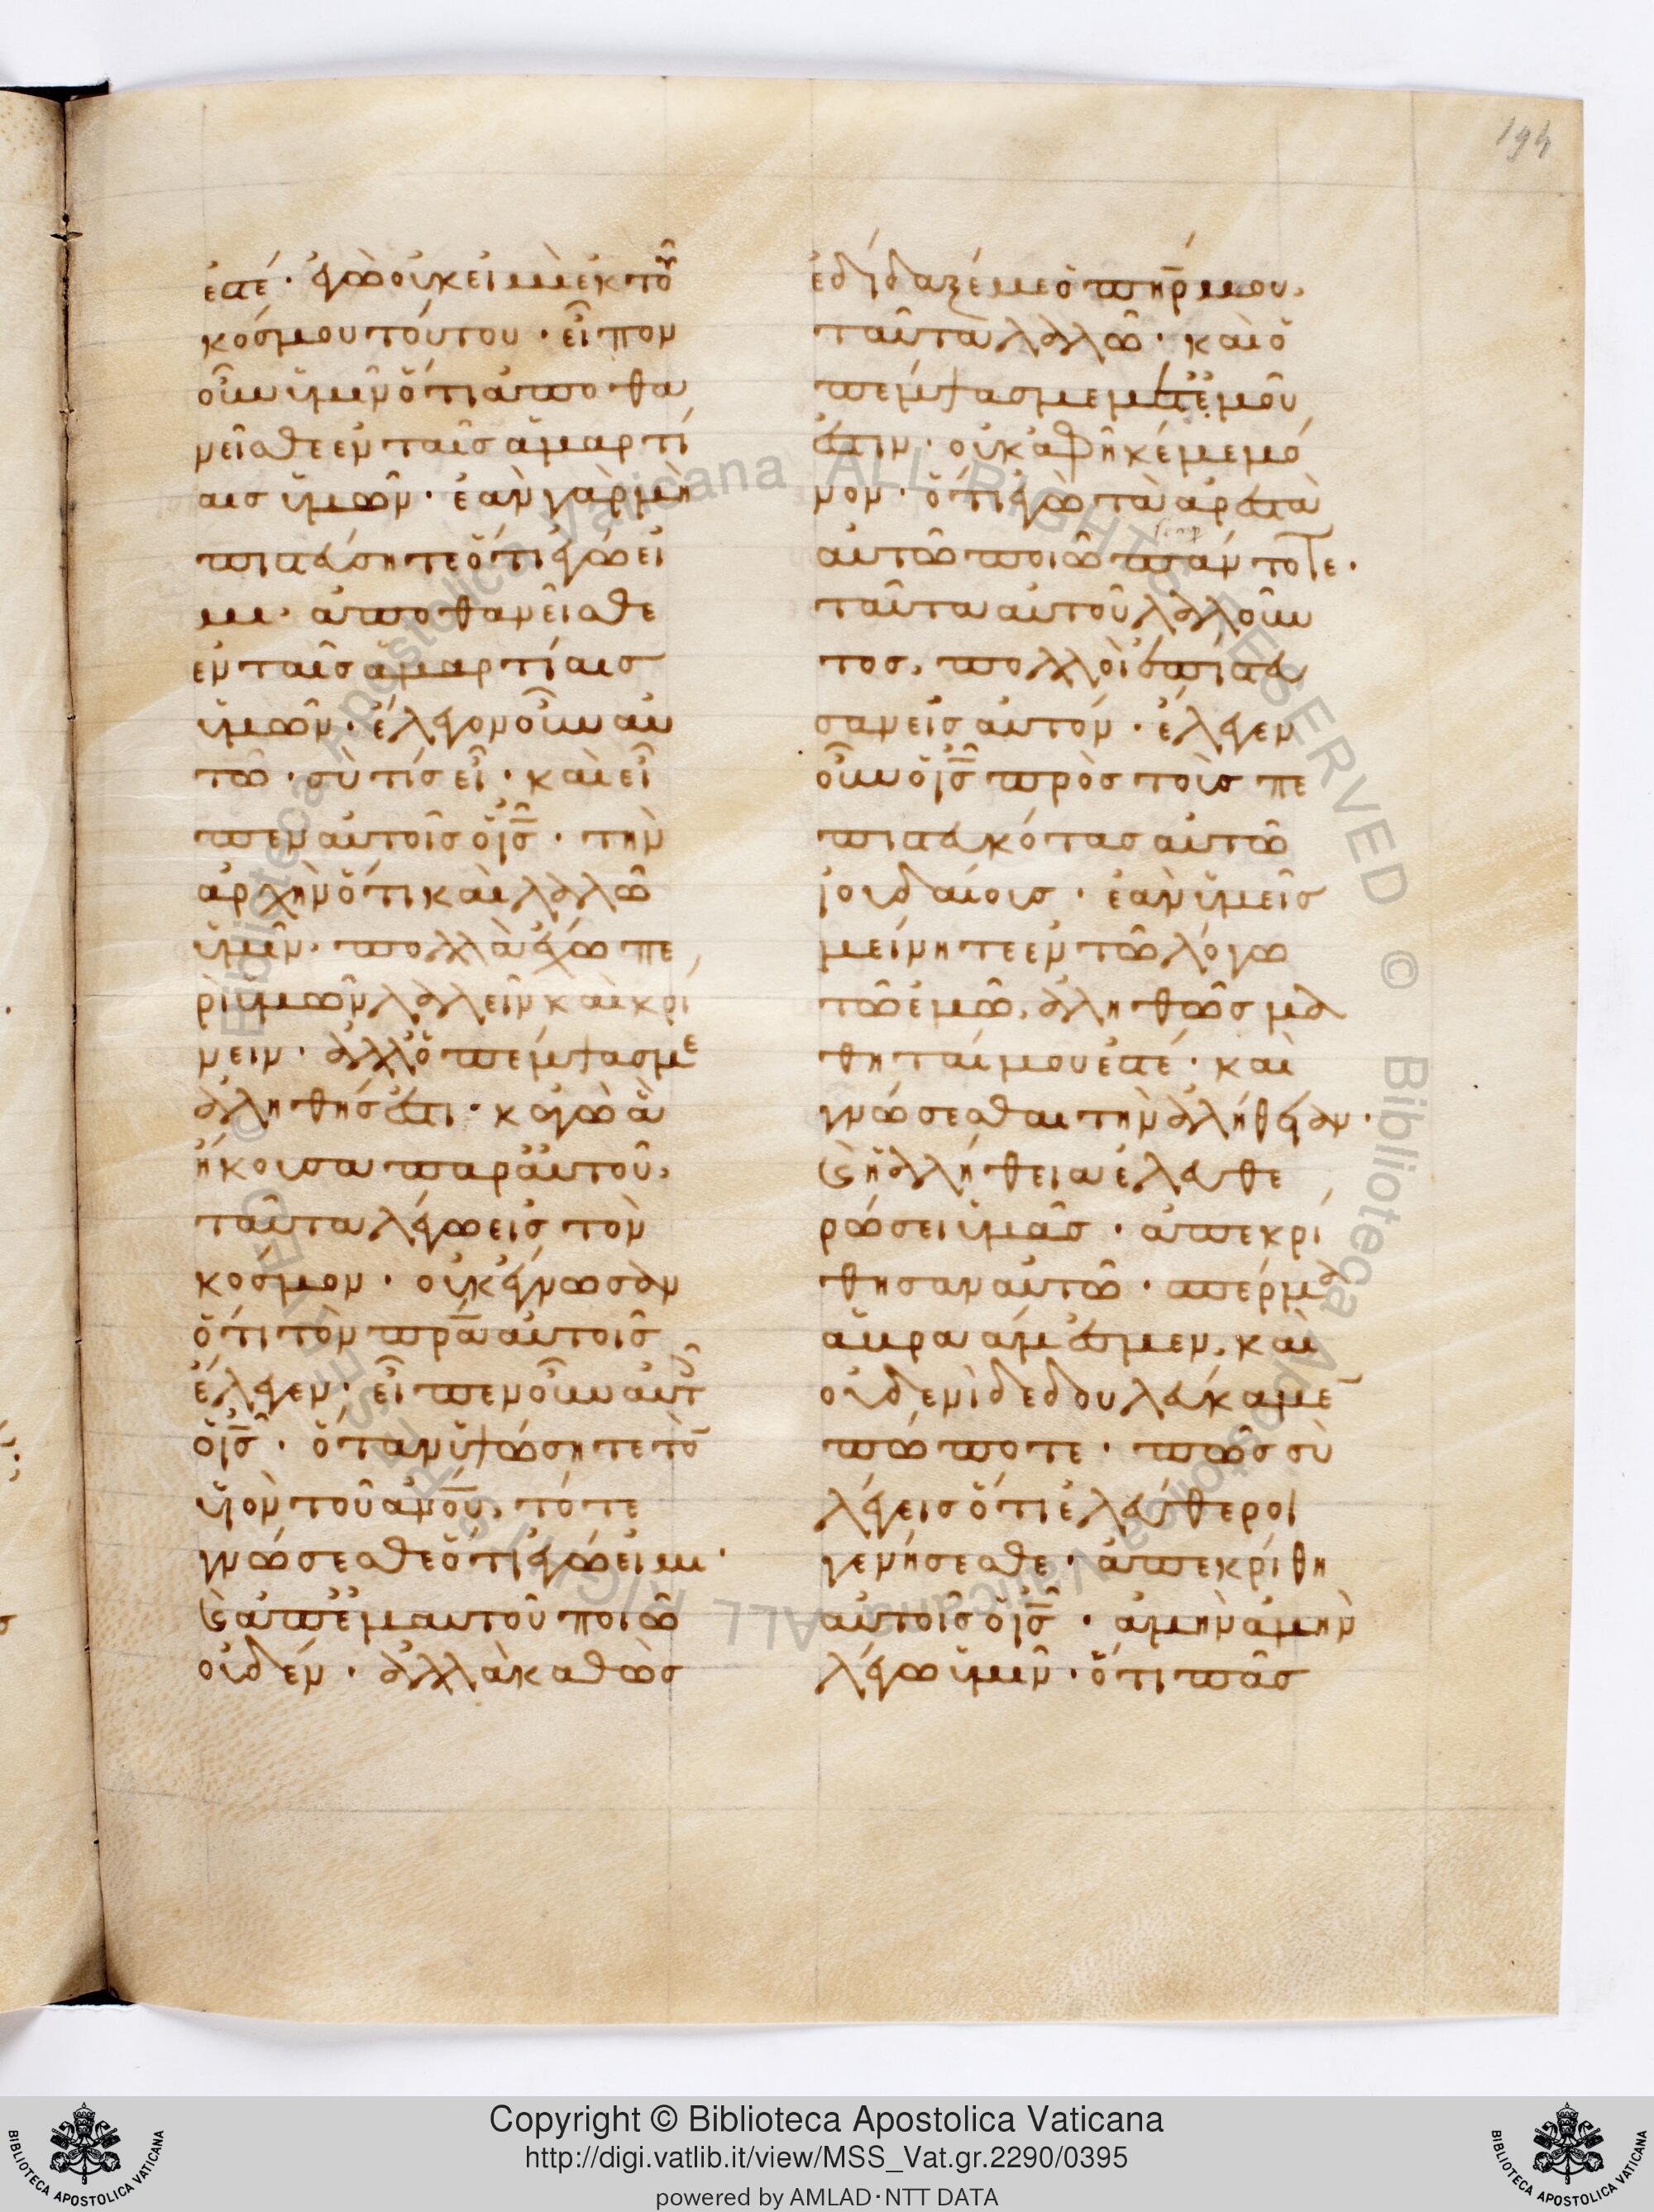 194
ἐστέ· ἐγὼ οὐκ εἰμὶ ἐκ τοῦ
κόσμου τούτου· εἶπον
οὖν ὑμῖν ὅτι ἀποθα
νεῖσθε ἐν ταῖς ἁμαρτί
αις ὑμῶν· ἐὰν γὰρ μὴ
πιστεύσητε ὅτι ἐγώ εἰ
μι· ἀποθανεῖσθε
ἐν ταῖς ἁμαρτίαις
ὑμῶν· ἔλεγον οὖν αὐ
τῶ· σὺ τίς εἶ· καὶ εἶ
πεν αὐτοῖς ὁ ἰς̅· τὴν
ἀρχὴν ὅτι καὶ λαλῶ
ὑμῖν· πολλὰ ἔχω πε
ρὶ ὑμῶν λαλεῖν καὶ κρί
νειν· ἀλλ' ὁ πέμψας με
ἀληθής ἐστι· κἀγὼ ἃ
ἤκουσα παρ' αὐτοῦ,
ταῦτα λέγω εἰς τὸν
κόσμον· οὐκ ἔγνωσαν
ὅτι τὸν πρ̅α αὐτοῖς
ἔλεγεν· εἶπεν οὖν αὐτοῖς
ὁ ἰς̅· ὅταν ὑψώσητε τὸ̅
υἱὸν τοῦ ἀν̅ου, τότε
γνώσεσθε ὅτι ἐγώ εἰμι·
ϗ ἀπ' ἐμαυτοῦ ποιῶ
οὐδέν· ἀλλὰ καθὼς
ἐδίδαξέ με ὁ πη̅ρ μου,
ταῦτα λαλῶ· καὶ ὁ
πέμψας με μετ' ἐμοῦ
ἐστιν· οὐκ ἀφῆκέ με μό
νον· ὅτι ἐγὼ τὰ ἀρεστὰ
αὐτῶ ποιῶ πάντοτε·
ταῦτα αὐτοῦ λαλοῦν
τος, πολλοὶ ἐπίστευ
σαν εἰς αὐτόν· ἔλεγεν
οὖν ὁ ἰς̅ πρὸς τοὺς πε
πιστευκότας αὐτῶ
ἰουδαίους· ἐὰν ὑμεῖς
μείνητε ἐν τῶ λόγω
τῶ ἐμῶ, ἀληθῶς μα
θηταί μου ἐστέ· καὶ
γνώσεσθαι τὴν ἀλήθειαν·
ϗ ἡ ἀλήθεια ἐλευθε
ρώσει ὑμᾶς· ἀπεκρί
θησαν αὐτῶ· σπέρμα
ἀβραάμ ἐσμεν, καὶ
οὐδενὶ δεδουλεύκαμε̅
πώποτε· πῶς σὺ
λέγεις ὅτι ἐλεύθεροι
γενήσεσθε· ἀπεκρίθη
αὐτοῖς ὁ ἰς̅· ἀμὴν ἀμὴν
λέγω ὑμῖν· ὅτι πᾶς
Copyright © Biblioteca Apostolica Vaticana
http://digi.vatlib.it/view/MSS_Vat.gr.2290/0395
powered by AMLAD·NTT DATA
BIBLIOTECA APOSTOLICA VATICANA
BIBLIOTECA APOSTOLICA VATICANA